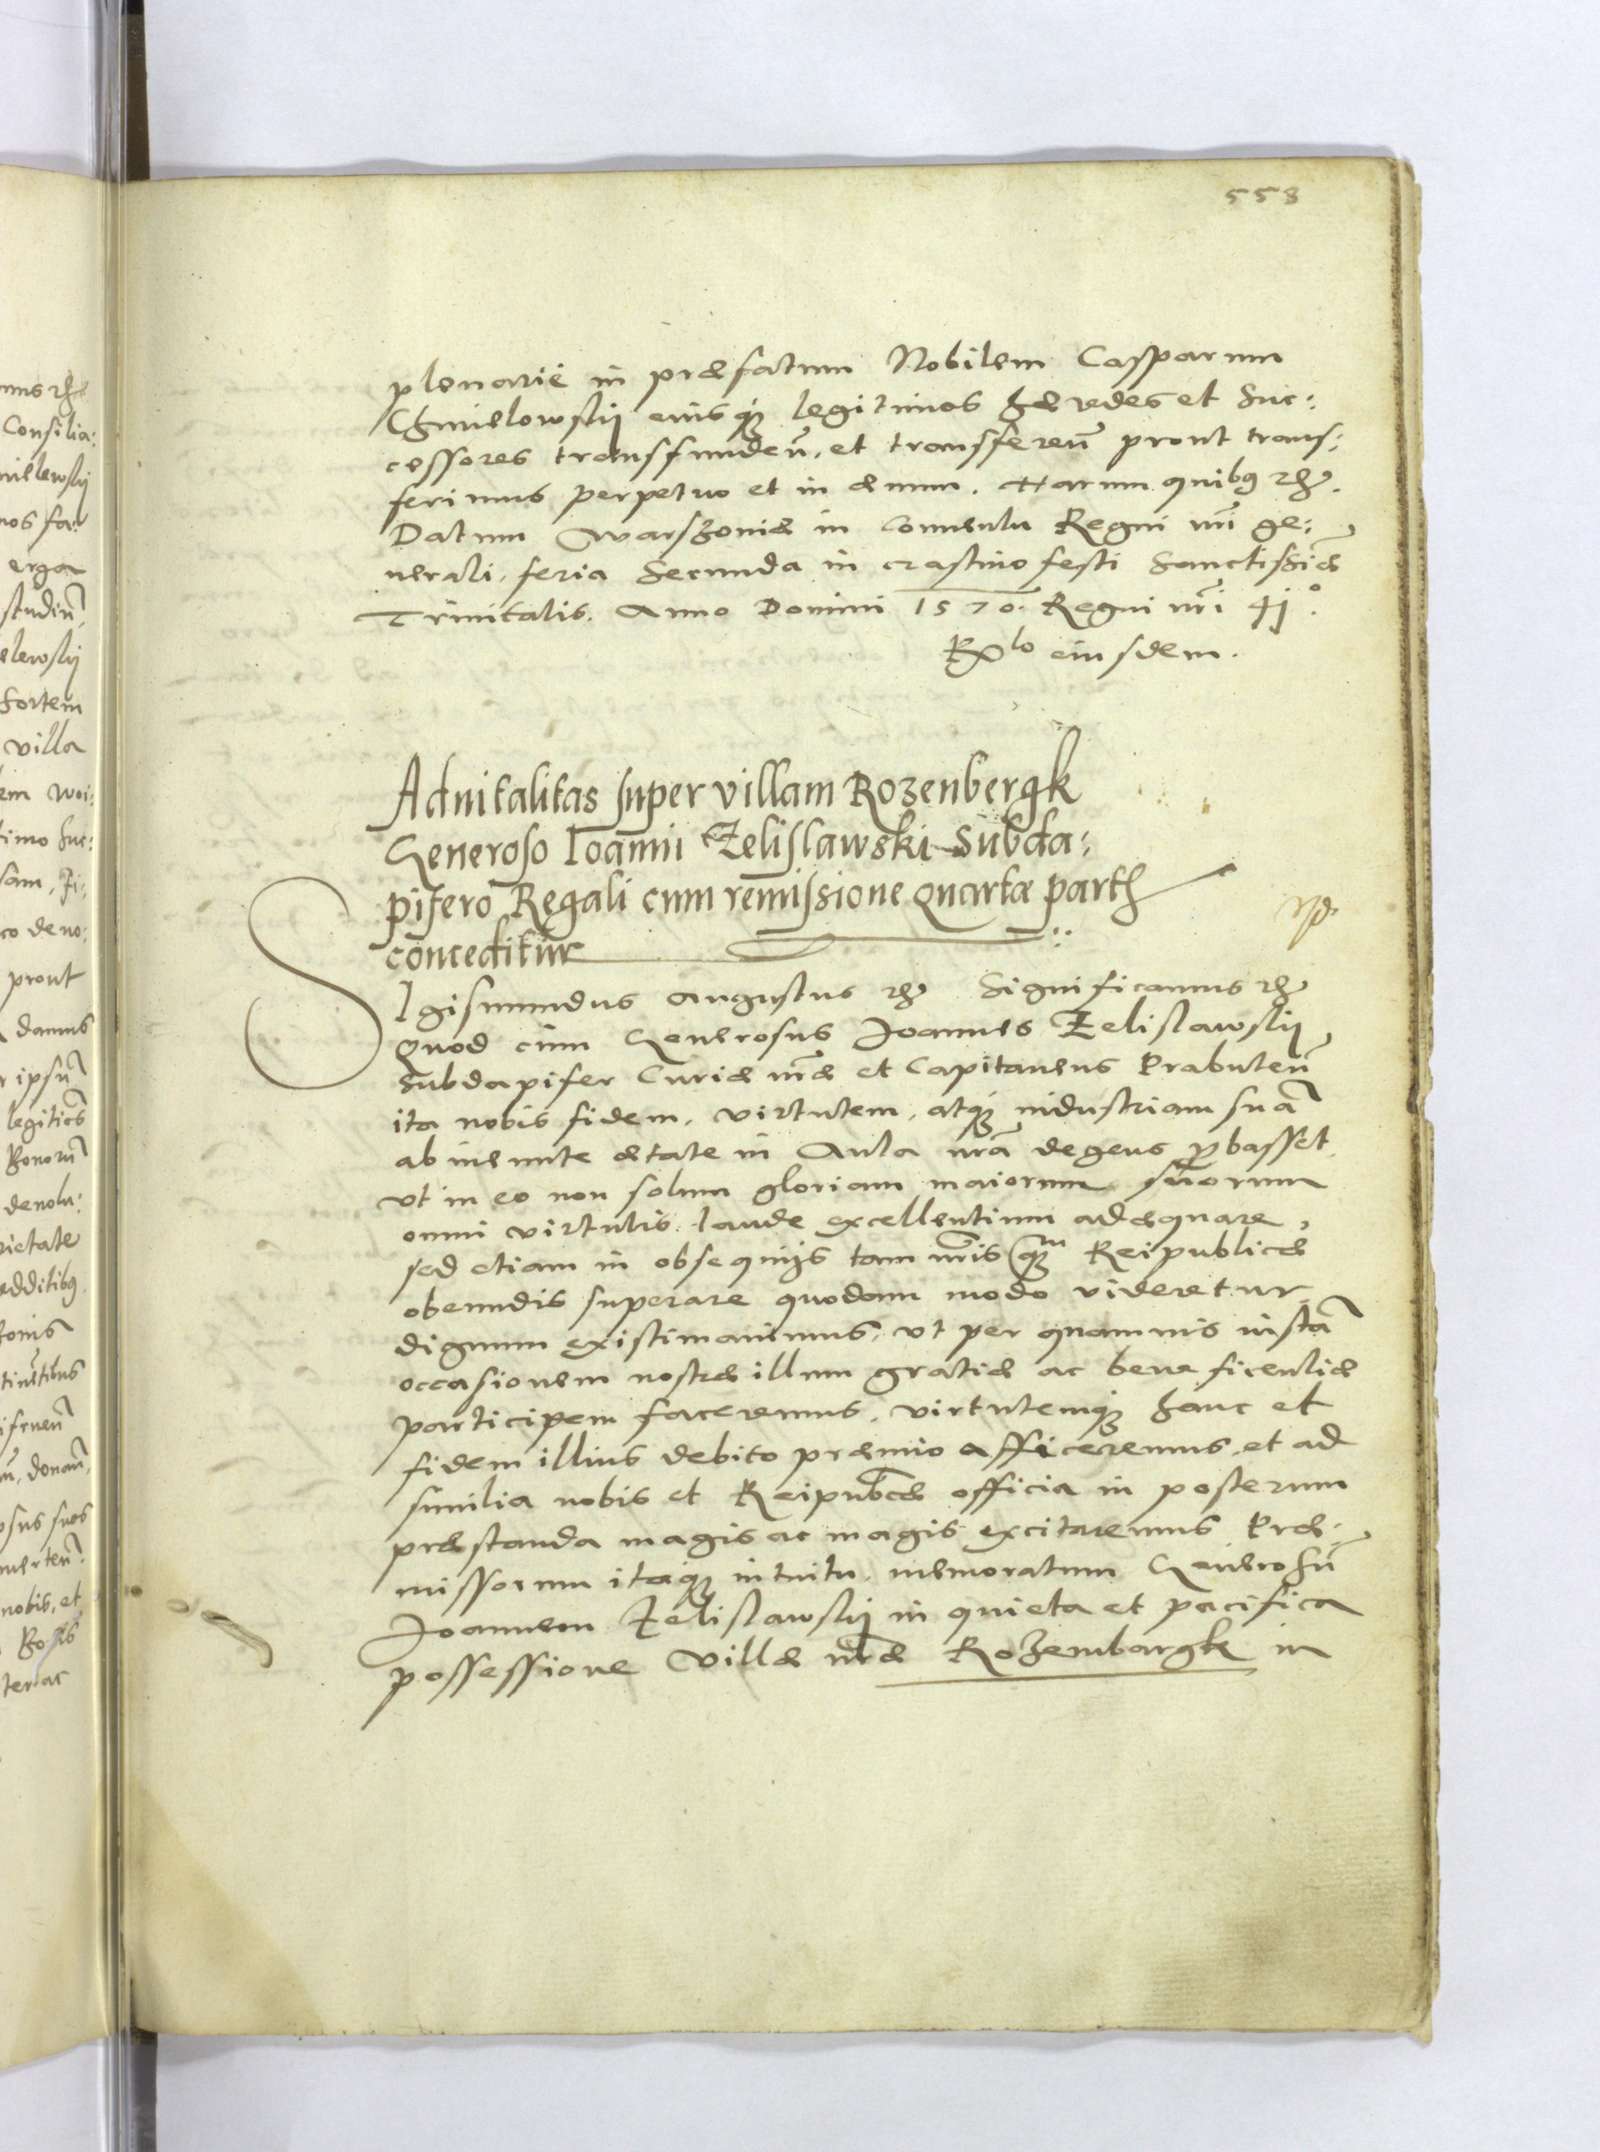 558
plenarie in præfatum Nobilem Casparum
Chmielowskij eiusq₃ legitimos hæredes et Suc:
cessores transfundeñ, et transfereñ prout trans:
ferimus perpetuo et in æuum. Harum quib₉ rẽ.
Datum Warszouiæ in Conuentu Regni nr̃i ge:
nerali, feria Secunda in crastino festi Sanctissiæ̃
Trinitatis. Anno Domini 1570. Regni nr̃i 4j°.
Rᵒˡᵒ eiusdem.
Aduitalitas super villam Rozenbergk
Generoso Ioanni Zelislawski Subda:
pifero Regali cum remissione quartæ partis
conceditur
SIgismundus Augustus rẽ Significamus rẽ
Quod cum Generosus Joannes Zelislawskij
Subdapifer Curiæ nr̃æ et Capitaneus Prabuteñ
ita nobis fidem, virtutem, atq₃ industriam suã
ab ineunte ætate in Aula nr̃a degens ꝓbasset,
vt in eo non solum gloriam maiorum suorum
omni virtutis laude excellentium adæquare,
sed etiam in obsequijs tam nr̃is q̃m Reipublicæ
obeundis superare quodam modo videretur
dignum existimauimus, vt per quamuis iustã
occasionem nostræ illum gratiæ ac beneficentiæ
participem faceremus, virtutemq₃ hanc et
fidem illius debito præmio afficeremus, et ad
similia nobis et Reipub̃cæ officia in posterum
præstanda magis ac magis excitaremus. Præ:
missorum itaq₃ intuitu, memoratum Generosũ
Joannem Zelislawskij in quieta et pacifica
possessione Villæ nr̃æ Rozembargk in